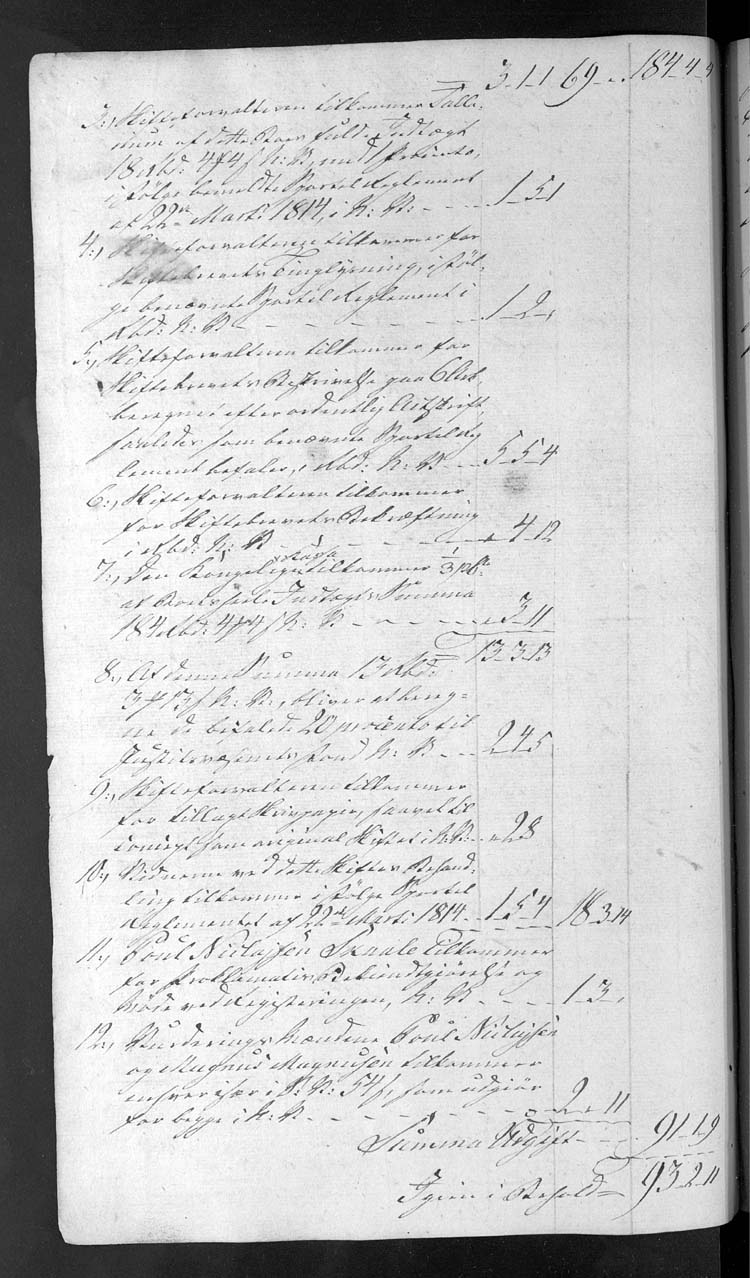 3-1-1 69 - " 184-4-4
3., Skifteforvalteren tilkommer Salli-
rium af dette Boes fulde Indtægt
184 Rbd: 4 ₰ 4 s N: V:, med 1 procento,
ifølge bemeldte Sportel Reglement
af 22de Marti 1814, i N: V: - - - 1-5-1
4., Skifteforvalteren tilkommer for
Skiftebrevets Tinglysning, iføl-
ge benævnte Sportel Reglement i
Rbd: N: V: - - - - - - 1-2-"
5., Skifteforvalteren tilkommer for
Skiftebrevets Beskrivelse paa 6 Ark,
beregnet efter ordentlig Udskrift,
saaledes som benævnte Sportel Reg
lement befaler, i Rbd: N: V: - - 5-5-4
6., Skifteforvalteren tilkommer
for Skiftebrevets Bekræftning
i Rbd: N: V: - - - - - - " 4-12
7., Den Kongelige Kassa tilkommer 1/3 pCto
af Boets heele Indtægts Summa
184 Rbd: 4 ₰ 4 s N: V: - - - - " 3-11
13-3-13
8., Af denne Summa 13 Rbd:
3 ₰ 13 s N: V:, bliver at bereg-
ne de befalede 20 procento til
Justitsvæsenets Fond N: V: - - 2-4-5
9., Skifteforvalteren tilkommer
for tillagt Skrivpapir, saavel til
concept som original Skiftet i N: V: - " 2-8
10., Vidnerne ved dette Skiftes Behand-
ling tilkommer ifølge Sportel
Reglementet af 22de Marti 1814 - 1-5-4 18-3-14
11., Poul Niclasen Skaale tilkommer
for Proklamatis Bekiendtgiørelse og
Møde ved Registeringen, N: V: - - - - 1-3-"
12., Vurderings Mændene Poul Niclasen
og Magnus Magnusen tilkommer
enhver især i N: V: 54 s, som udgiør
for begge i N: V: - - - - - - 2-"-11
Summa Udgift - - - 91-1-9
Igien i Behold = 93-2-11